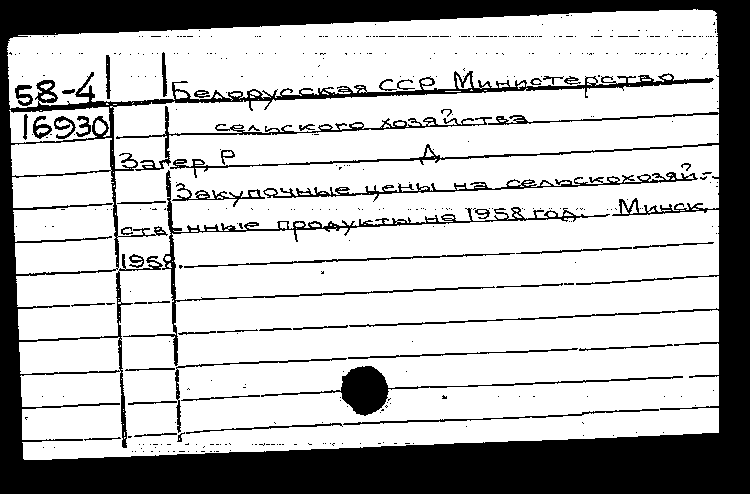 58-4 Белорусская ССР Министерство
16930 сельского хозяйства
Загер, Р Д
Закупочные цены на сельскохозяй-
ственные продукты на 1958 год. Минск,
1958.